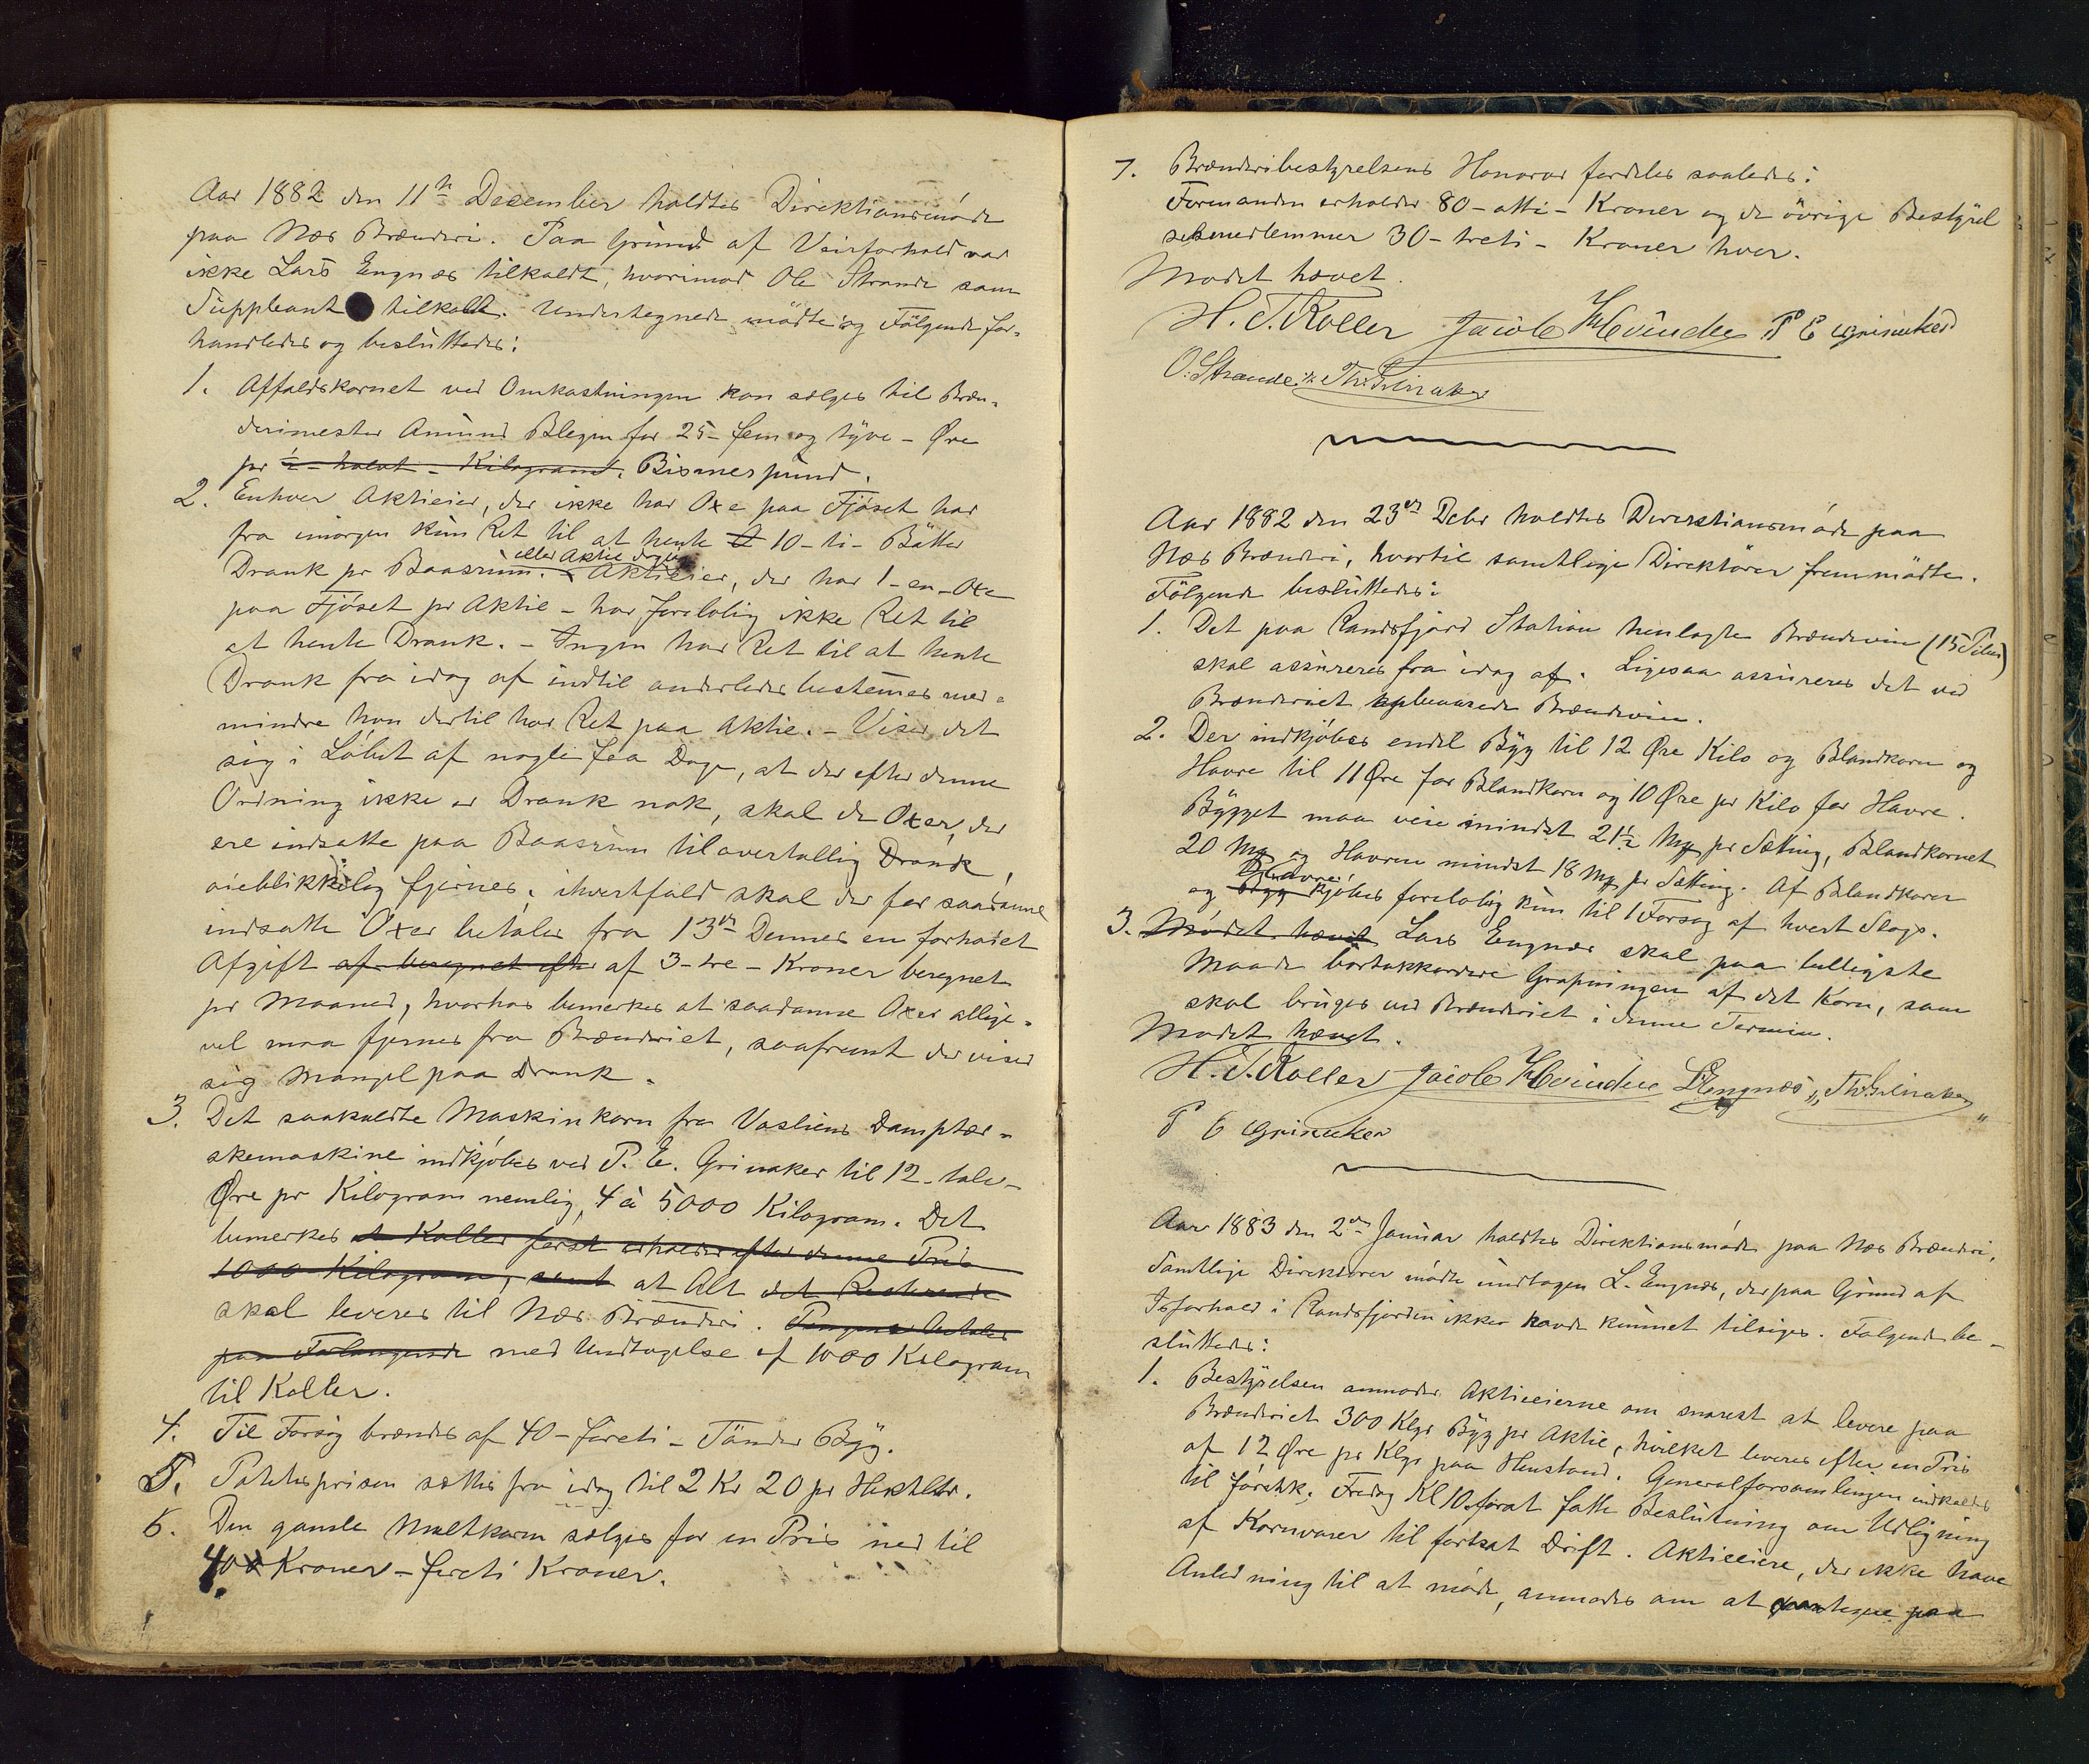 Aar 1882 den 11te December holdtes Direktionsmöde
paa Næs Brænderi. Paa Grund af Veirforhold var
ikke Lars Engnæs tilkaldt, hvorimod Ole Strande som
Suppleant tilkaldt. Undertegnede mödte og Fölgende for-
handledes og besluttedes:
1. Affaldskornet ved Omkastningen kan sælges til Bræn-
derimester Amund Blegen for 25 - fem og tyve - Øre
pr ½ - halvt - Kilogram. Bismerpund.
2. Enhver Aktieeier, der ikke har Oxe paa Fjöset har
fra imorgen kun Ret til at hente 10 - ti - Bötter
eller Aktie daglig
Drank pr Baasrum. Aktieeier, der har 1 - en - Oxe
paa Fjöset pr Aktie - har forelöbig ikke Ret til
at hente Drank. - Ingen har Ret til at hente
Drank fra idag af indtil anderledes bestemes med-
mindre han dertil har Ret paa Aktie. - Viser det
sig i Löbet af nogle faa Dage, at der efter denne
Ordning ikke er Drank nok, skal de Oxer, der
ere indsatte paa Baasrum til overtallig Drank,
öieblikkelig fjernes; ihvertfald skal der for saadanne
indsatte Oxer betales fra 13de Dennes en forhöiet
Afgift af beregnet efter af 3 - tre - Kroner beregnet
pr Maaned, hvorhos bemerkes at saadanne Oxer allige-
vel maa fjernes fra Brænderiet, saafremt der viser
sig Mangel paa Drank.
3. Det saakaldte Maskinkorn fra Vasliens Damptær-
skemaskine indkjöbes ved P. E. Grinaker til 12 - tolv -
Øre pr Kilogram nemlig, 4 à 5000 Kilogram. Det
bemerkes at Koller först erholder efter denne Pris
1000 Kilogram, samt at Alt det Resterende
skal leveres til Næs Brænderi. Pengene betales
paa Forlangende med Undtagelse af 1000 Kilogram
til Koller.
4. Til Forsög brændes af 40 - företi - Tönder Byg.
5. Potetesprisen sættes fra idag til 2 Kr 20 pr Hektltr.
6. Den gamle Maltkværn sælges for en Pris ned til
40 Kroner - företi Kroner.
7. Brænderibestyrelsens Honorar fordeles saaledes:
Formanden erholder 80 - otti - Kroner og de övrige Bestyrel
sesmedlemmer 30 - treti - Kroner hver.
Mödet hævet.
H. T. Koller Jacob Hvinden P E Grinaker
O. Strande. Th: Grinaker
Aar 1882 den 23de Debr holdtes Direktionsmöde paa
Næs Brænderi, hvortil samtlige Direktörer fremmödte.
Fölgende besluttedes:
1. Det paa Randsfjord Station henlagte Brændevin (15 Piber)
skal assureres fra idag af. Ligesaa assureres det ved
Brænderiet opbevarede Brændevin.
2. Der indkjöbes endel Byg til 12 Øre Kilo og Blandkorn og
Havre til 11 Øre for Blandkorn og 10 Øre pr Kilo for Havre.
Bygget maa veie mindst 21½ Mg pr Sætting, Blandkornet
20 Mg og Havren mindst 18 Mg pr Sætting. Af Blandkorn
Havre
og Byg kjöbes forelöbig kun til 1 Forsög af hvert Slags.
3. Mödet hævet Lars Engnæs skal paa billigste
Maade bortakkordere Gröpningen af det Korn, som
skal bruges ved Brænderiet i denne Termin.
Mödet hævet.
H. T. Koller Jacob Hvinden L Engnæs Th: Grinaker
P E Grinaker
Aar 1883 den 2den Januar holdtes Direktionsmöde paa Næs Brænderi,
Samtlige Direktörer mödte undtagen L. Engnæs, der paa Grund af
Isforhold i Randsfjorden ikke havde kunnet tilsiges. Fölgende be-
sluttedes:
1. Bestyrelsen anmoder Aktieeierne om snarest at levere paa
Brænderiet 300 Klgr Byg pr Aktie, hvilket leveres efter en Pris
af 12 Øre pr Klgr paa Henstand. Generalforsamlingen indkaldes
til förstk. Fredag Kl 10 forat fatte Beslutning om Udligning
af Kornvarer til fortsat Drift. Aktieeiere, der ikke have
Anledning til at möde, anmodes om at paategne paa